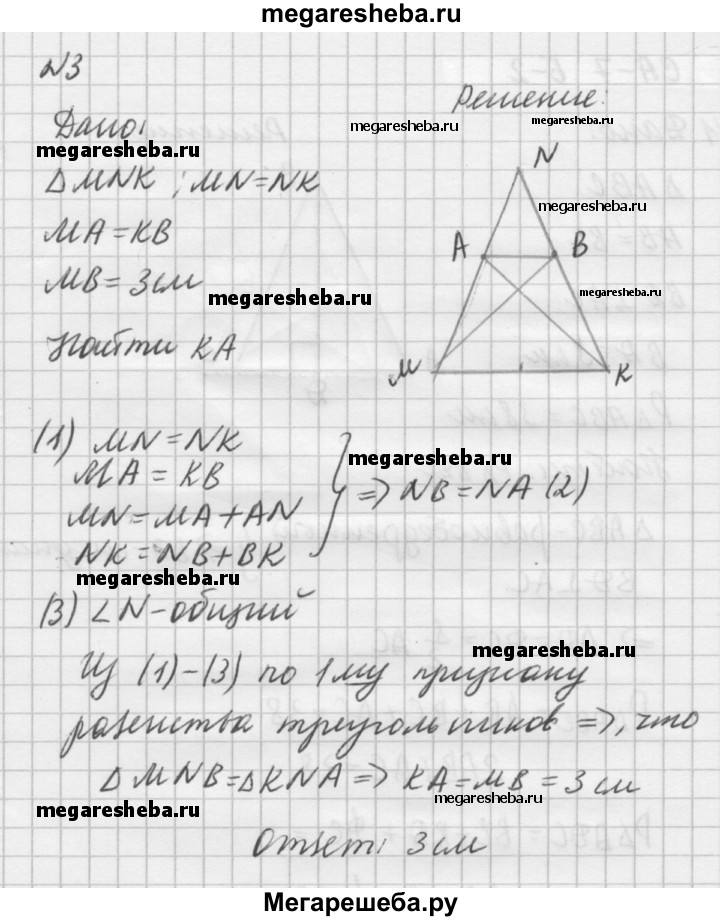 megaresheba.ru
№3
Решение:
Дано:
megaresheba.ru
megaresheba.ru
megaresheba.ru
N
△MNK ; MN=NK
megaresheba.ru
MA=KB
A
B
MB=3см
megaresheba.ru
megaresheba.ru
Найти KA
M
K
(1) MN=NK
MA=KB
megaresheba.ru
=> NB=NA (2)
MN=MA+AN
NK=NB+BK
megaresheba.ru
(3) ∠N-общий
megaresheba.ru
Из (1)-(3) по 1му признаку
равенства треугольников =>, что
△MNB=△KNA => KA=MB=3см
megaresheba.ru
megaresheba.ru
Ответ: 3см
Мегарешеба.ру